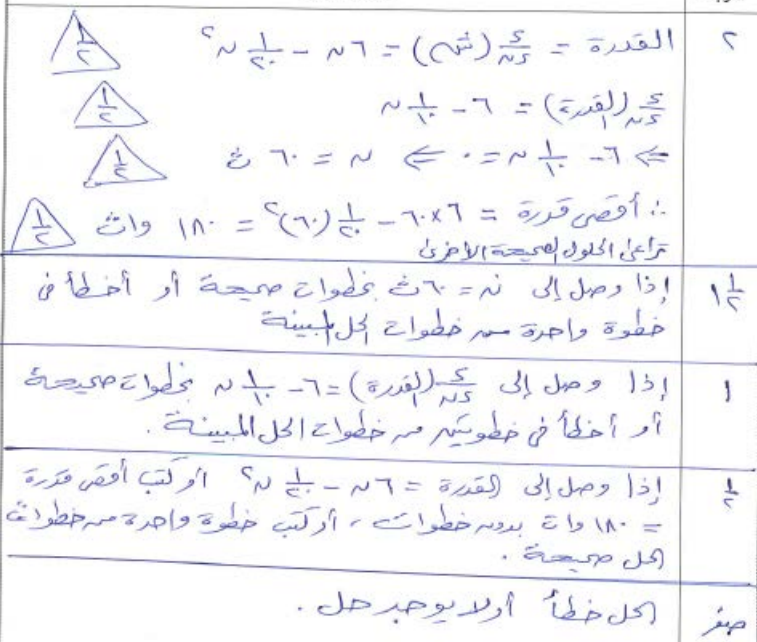 ٢
القدرة = د/دن (شہ) = ٦ن − ١/٢٠ ن٢ ١/٢
د/دن (القدرة) = ٦ − ١/١٠ ن ١/٢
⇒ ٦ − ١/١٠ ن = ٠ ⇒ ن = ٦٠ ث ١/٢
∴ أقصى قدرة = ٦×٦٠ − ١/٢٠ (٦٠)٢ = ١٨٠ وات ١/٢
تراعى الحلول الصحيحة الأخرى
١ ١/٢
إذا وصل إلى ن = ٦٠ ث بخطوات صحيحة أو أخطأ في
خطوة واحدة من خطوات الحل المبينة
١
إذا وصل إلى د/دن (القدرة) = ٦ − ١/١٠ ن بخطوات صحيحة
أو أخطأ في خطوتين من خطوات الحل المبينة .
١/٢
إذا وصل إلى القدرة = ٦ن − ١/٢٠ ن٢ أو كتب أقصى قدرة
= ١٨٠ وات بدون خطوات ، أو كتب خطوة واحدة من خطوات
الحل صحيحة .
صفر
الحل خطأ أو لا يوجد حل .